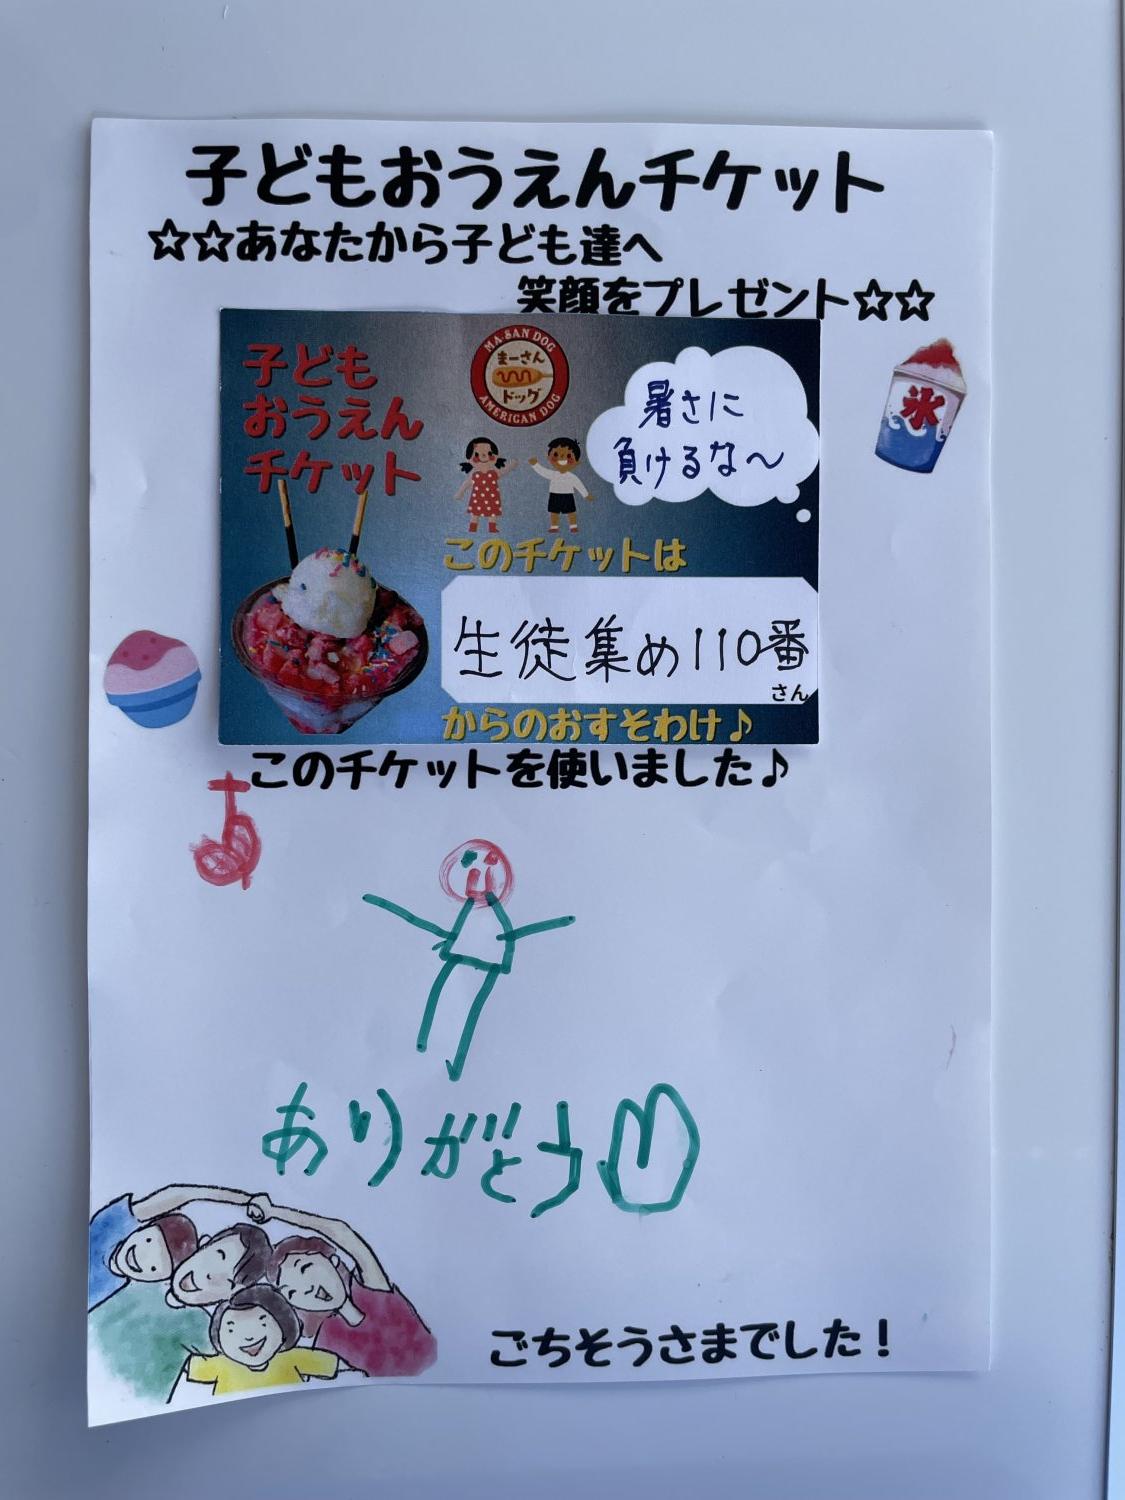 子どもおうえんチケット
☆☆あなたから子ども達へ
笑顔をプレゼント☆☆
子ども
おうえん
チケット
MA-SAN DOG
まーさん
ドッグ
AMERICAN DOG
暑さに
負けるな〜
氷
このチケットは
生徒集め110番
さん
からのおすそわけ♪
このチケットを使いました♪
よ
ありがとう
ごちそうさまでした！